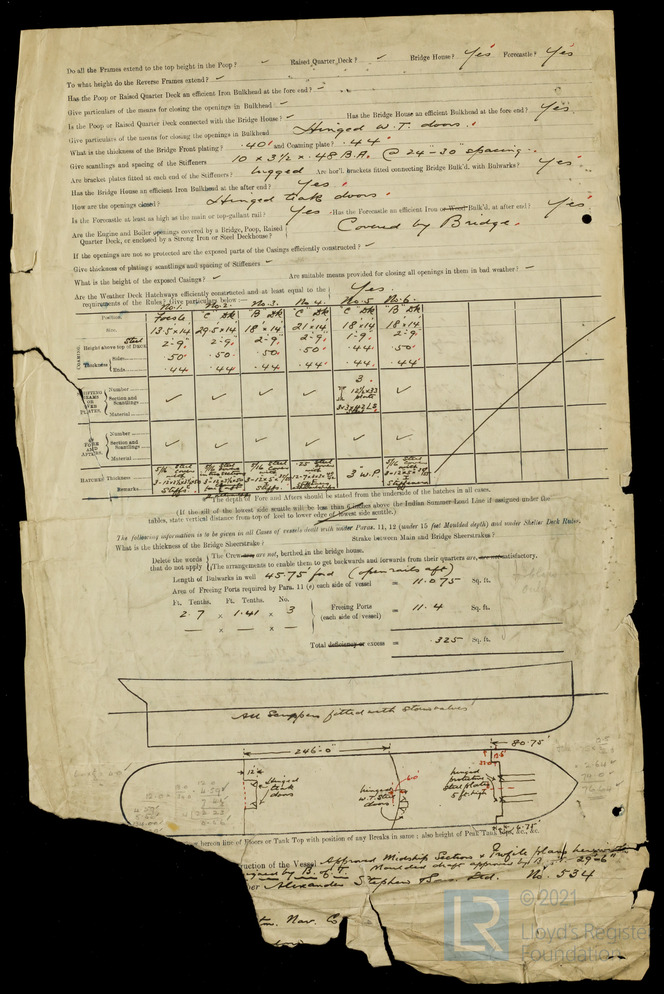 Do all the Frames extend to the top height in the Poop? ✓ Raised Quarter Deck? ✓ Bridge House? Yes Forecastle? Yes
To what height do the Reverse Frames extend? ✓
Has the Poop or Raised Quarter Deck an efficient Iron Bulkhead at the fore end? ✓
Give particulars of the means for closing the openings in Bulkhead ✓
Is the Poop or Raised Quarter Deck connected with the Bridge House? ✓ Has the Bridge House an efficient Bulkhead at the fore end? Yes
Give particulars of the means for closing the openings in Bulkhead Hinged W.T. doors.
What is the thickness of the Bridge Front plating? .40 and Coaming plate? .44
Give scantlings and spacing of the Stiffeners 10 x 3½ x .48 B.A. @ 24"-30" spacing.
Are bracket plates fitted at each end of the Stiffeners? Lugged Are hor'l. brackets fitted connecting Bridge Bulk'd. with Bulwarks? Yes
Has the Bridge House an efficient Iron Bulkhead at the after end? Yes.
How are the openings closed? Hinged teak doors.
Is the Forecastle at least as high as the main or top-gallant rail? Yes Has the Forecastle an efficient Iron or Wood Bulk'd, at after end? Yes
Are the Engine and Boiler openings covered by a Bridge, Poop, Raised
Quarter Deck, or enclosed by a Strong Iron or Steel Deckhouse? Covered by Bridge.
If the openings are not so protected are the exposed parts of the Casings efficiently constructed? ✓
Give thickness of plating; scantlings and spacing of Stiffeners ✓
What is the height of the exposed Casings? ✓ Are suitable means provided for closing all openings in them in bad weather? ✓
Are the Weather Deck Hatchways efficiently constructed and at least equal to the
requirements of the Rules? Give particulars below:— Yes.
No.1. No.2. No.3. No.4. No.5 No.6.
Position Focsle "C" Dk "B" Dk "C" Dk "C" Dk "B" Dk
Size 13.5x14 29.5x14 18x14 21x14 18x14 18x14
COAMING Height above top of DECK 2'-9" 2'-9" 2'-9" 2'-9" 1'-9" 2'-9"
Thickness Sides .50 .50 .50 .50 .44 .50
Ends .44 .44 .44 .44 .44 .44
Number ✓ ✓ ✓ ✓ 3 ✓
Section and Scantlings
Material
FORE AND AFTERS. Number
Section and Scantlings ✓ ✓ ✓ ✓ ✓ ✓
Material
HATCHES Thickness 3 W.P
Remarks
The depth of Fore and Afters should be stated from the underside of the hatches in all cases.
(If the sill of the lowest side scuttle will be less than 6 inches above the Indian Summer Load Line if assigned under the
tables, state vertical distance from top of keel to lower edge of lowest side scuttle.)
The following information is to be given in all Cases of vessels dealt with under Paras. 11, 12 (under 15 feet Moulded depth) and under Shelter Deck Rules.
What is the thickness of the Bridge Sheerstrake? Strake between Main and Bridge Sheerstrakes?
Delete the words that do not apply
The Crew are are not, berthed in the bridge house.
The arrangements to enable them to get backwards and forwards from their quarters are, are not satisfactory.
Length of Bulwarks in well 45.75' ford (open rails aft)
Area of Freeing Ports required by Para. 11 (e) each side of vessel = 11.075 Sq. ft.
Ft. Tenths. Ft. Tenths. No.
2.7 x 1.41 x 3 Freeing Ports (each side of vessel) = 11.4 Sq. ft.
— x x —
Total deficiency or excess = .325 Sq. ft.
All Scuppers fitted with Storm valves
246.0" 80.75'
12'6
Hinged teak doors
hinged W.T. Steel doors
hinged protection steel plates 5 ft. high
4.75'
hereon line of Floors or Tank Top with position of any Breaks in same; also height of Peak Tank tops, &c., &c.
ruction of the Vessel Approved Midship Section & Profile plan herewith
Moulded draft approved by B. of T. 29'-6"
Alexander Stephen & Sons Ltd. No. 534
Nav. Co
© 2021
LR
Lloyd's Register
Foundation